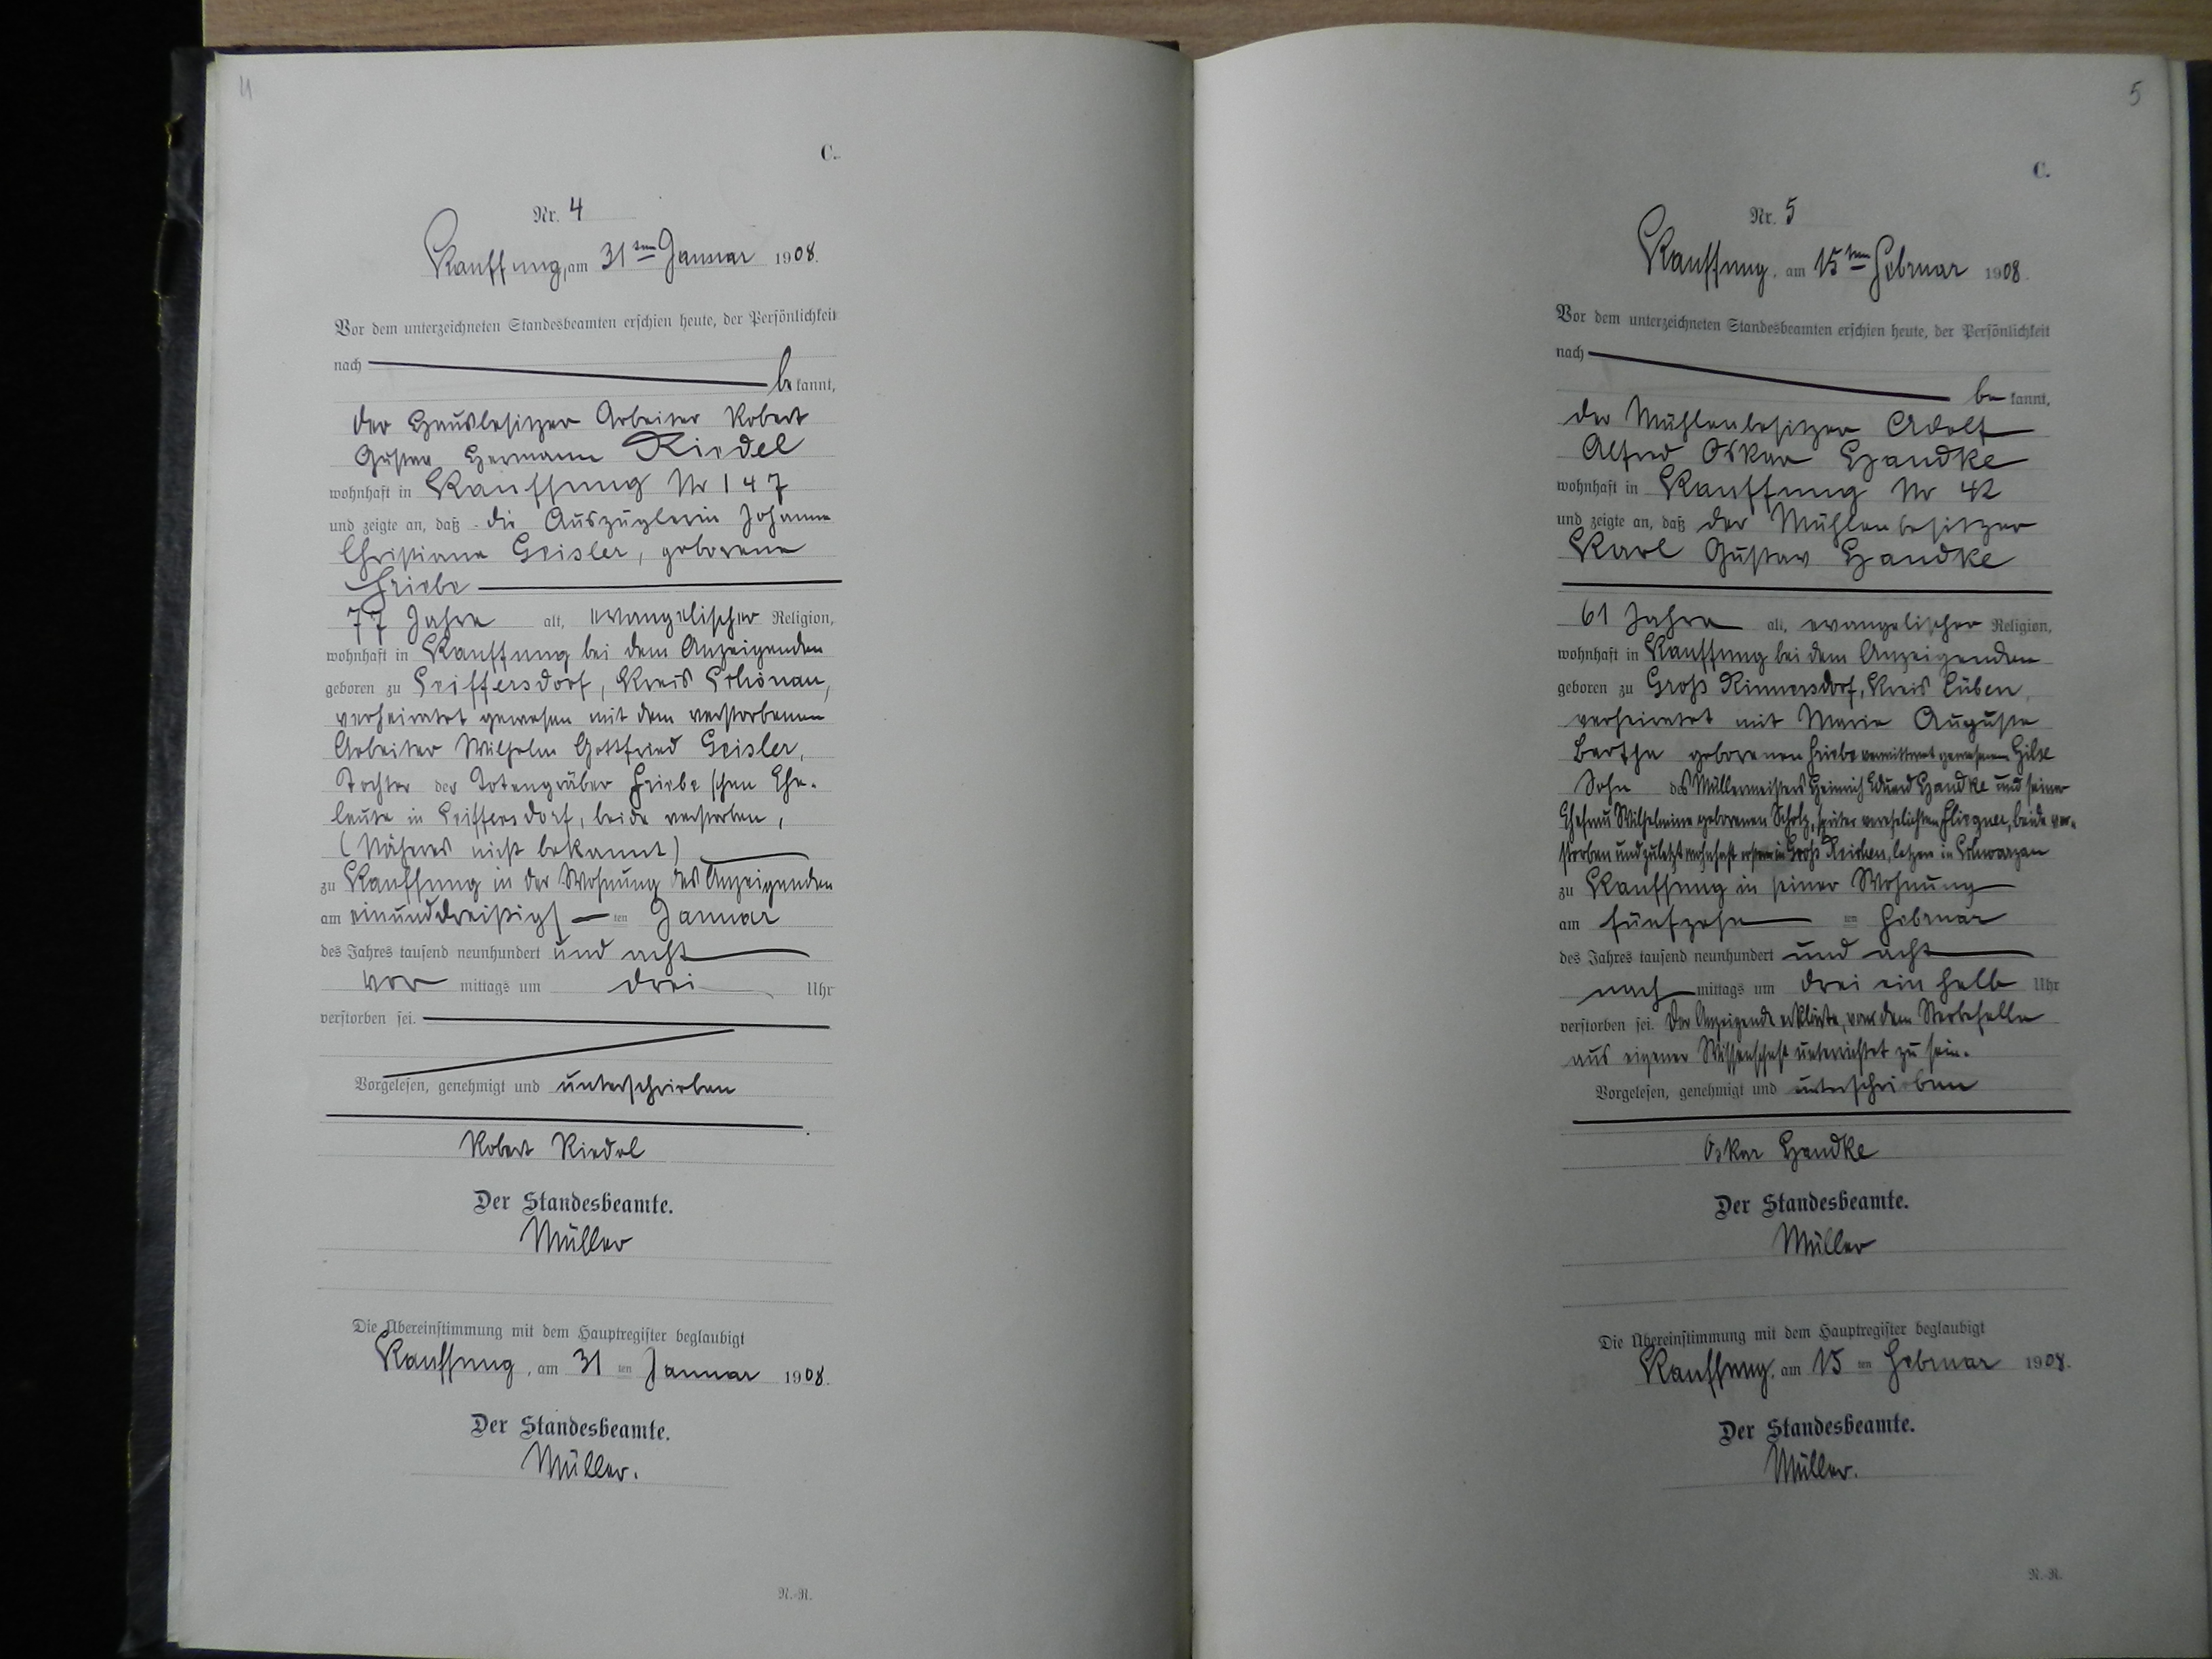 4
C.
Nr. 4
Kauffung, am 31ten Januar 1908.
Vor dem unterzeichneten Standesbeamten erschien heute, der Persönlichkeit
nach
bekannt,
der Hausbesitzer Arbeiter Robert
Gustav Hermann Riedel
wohnhaft in Kauffung Nr 147
und zeigte an, daß die Auszüglerin Johanne
Christiane Geisler, geborene
Friebe
77 Jahre alt, evangelischer Religion,
wohnhaft in Kauffung bei dem Anzeigenden
geboren zu Seiffersdorf, Kreis Schönau,
verheiratet gewesen mit dem verstorbenen
Arbeiter Wilhelm Gottfried Geisler,
Tochter der Totengräber Friebe'schen Ehe-
leute in Seiffersdorf, beide verstorben,
(Näheres nicht bekannt)
zu Kauffung in der Wohnung des Anzeigenden
am einunddreißigsten Januar
des Jahres tausend neunhundert und acht
vor mittags um drei Uhr
verstorben sei.
Vorgelesen, genehmigt und unterschrieben
Robert Riedel
Der Standesbeamte.
Müller
Die Übereinstimmung mit dem Hauptregister beglaubigt
Kauffung, am 31 ten Januar 1908.
Der Standesbeamte.
Müller.
N.-N.
5
C.
Nr. 5
Kauffung, am 15ten Februar 1908.
Vor dem unterzeichneten Standesbeamten erschien heute, der Persönlichkeit
nach
bekannt,
der Mühlenbesitzer Adolf
Alfred Oskar Handke
wohnhaft in Kauffung Nr 42
und zeigte an, daß der Mühlenbesitzer
Karl Gustav Handke
61 Jahre alt, evangelischer Religion,
wohnhaft in Kauffung bei dem Anzeigenden
geboren zu Groß Rinnersdorf, Kreis Lüben,
verheiratet mit Marie Auguste
Bertha geborenen Friebe verwittwet gewesenen Hilse
Sohn des Müllermeisters Heinrich Eduard Handke und seiner
Ehefrau Wilhelmine geborenen Scholz, später verehelichten Fliegner, beide ver-
storben und zuletzt wohnhaft in Groß Reichen, letzere in Schwarzau
zu Kauffung in seiner Wohnung
am fünfzehn ten Februar
des Jahres tausend neunhundert und acht
nach mittags um drei ein halb Uhr
verstorben sei. Der Anzeigende erklärte, von dem Sterbefalle
aus eigener Wissenschaft unterrichtet zu sein.
Vorgelesen, genehmigt und unterschrieben
Oskar Handke
Der Standesbeamte.
Müller
Die Übereinstimmung mit dem Hauptregister beglaubigt
Kauffung, am 15 ten Februar 1908.
Der Standesbeamte.
Müller.
N.-N.